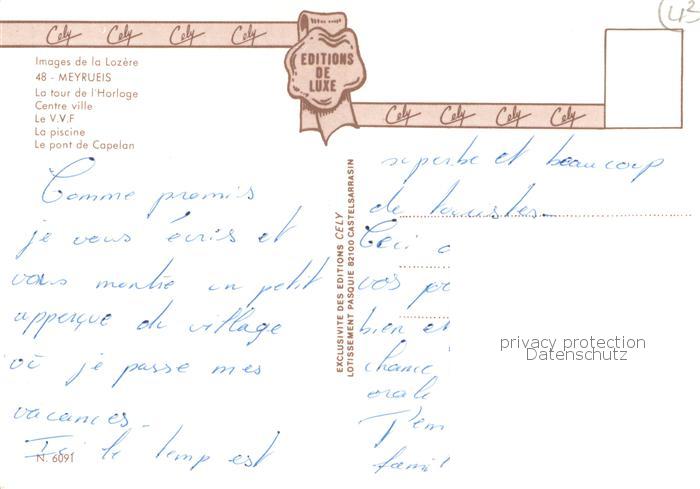 Cely Cely Cely Cely
EDITIONS
DE
LUXE
Cely Cely Cely Cely
Images de la Lozère
48 - MEYRUEIS
La tour de l'Horloge
Centre ville
Le V.V.F
La piscine
Le pont de Capelan
Comme promis
je vous écris et
vous montre un petit
apperçue du village
où je passe mes
vacances.
Ici le temp est
N. 6091
EXCLUSIVITE DES EDITIONS CELY
LOTISSEMENT PASQUIE 82100 CASTELSARRASIN
superbe et beaucoup
de touristes
Ceci
vos
bien et
chance
orale
J'em
famil
privacy protection
Datenschutz
43